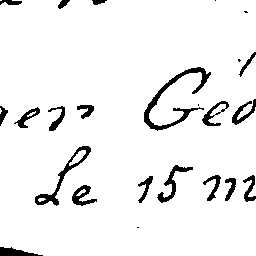 en Géo
Le 15 m